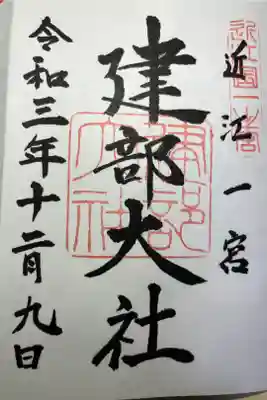 近江一宮
建部大社
建部
大社
令和三年十二月九日